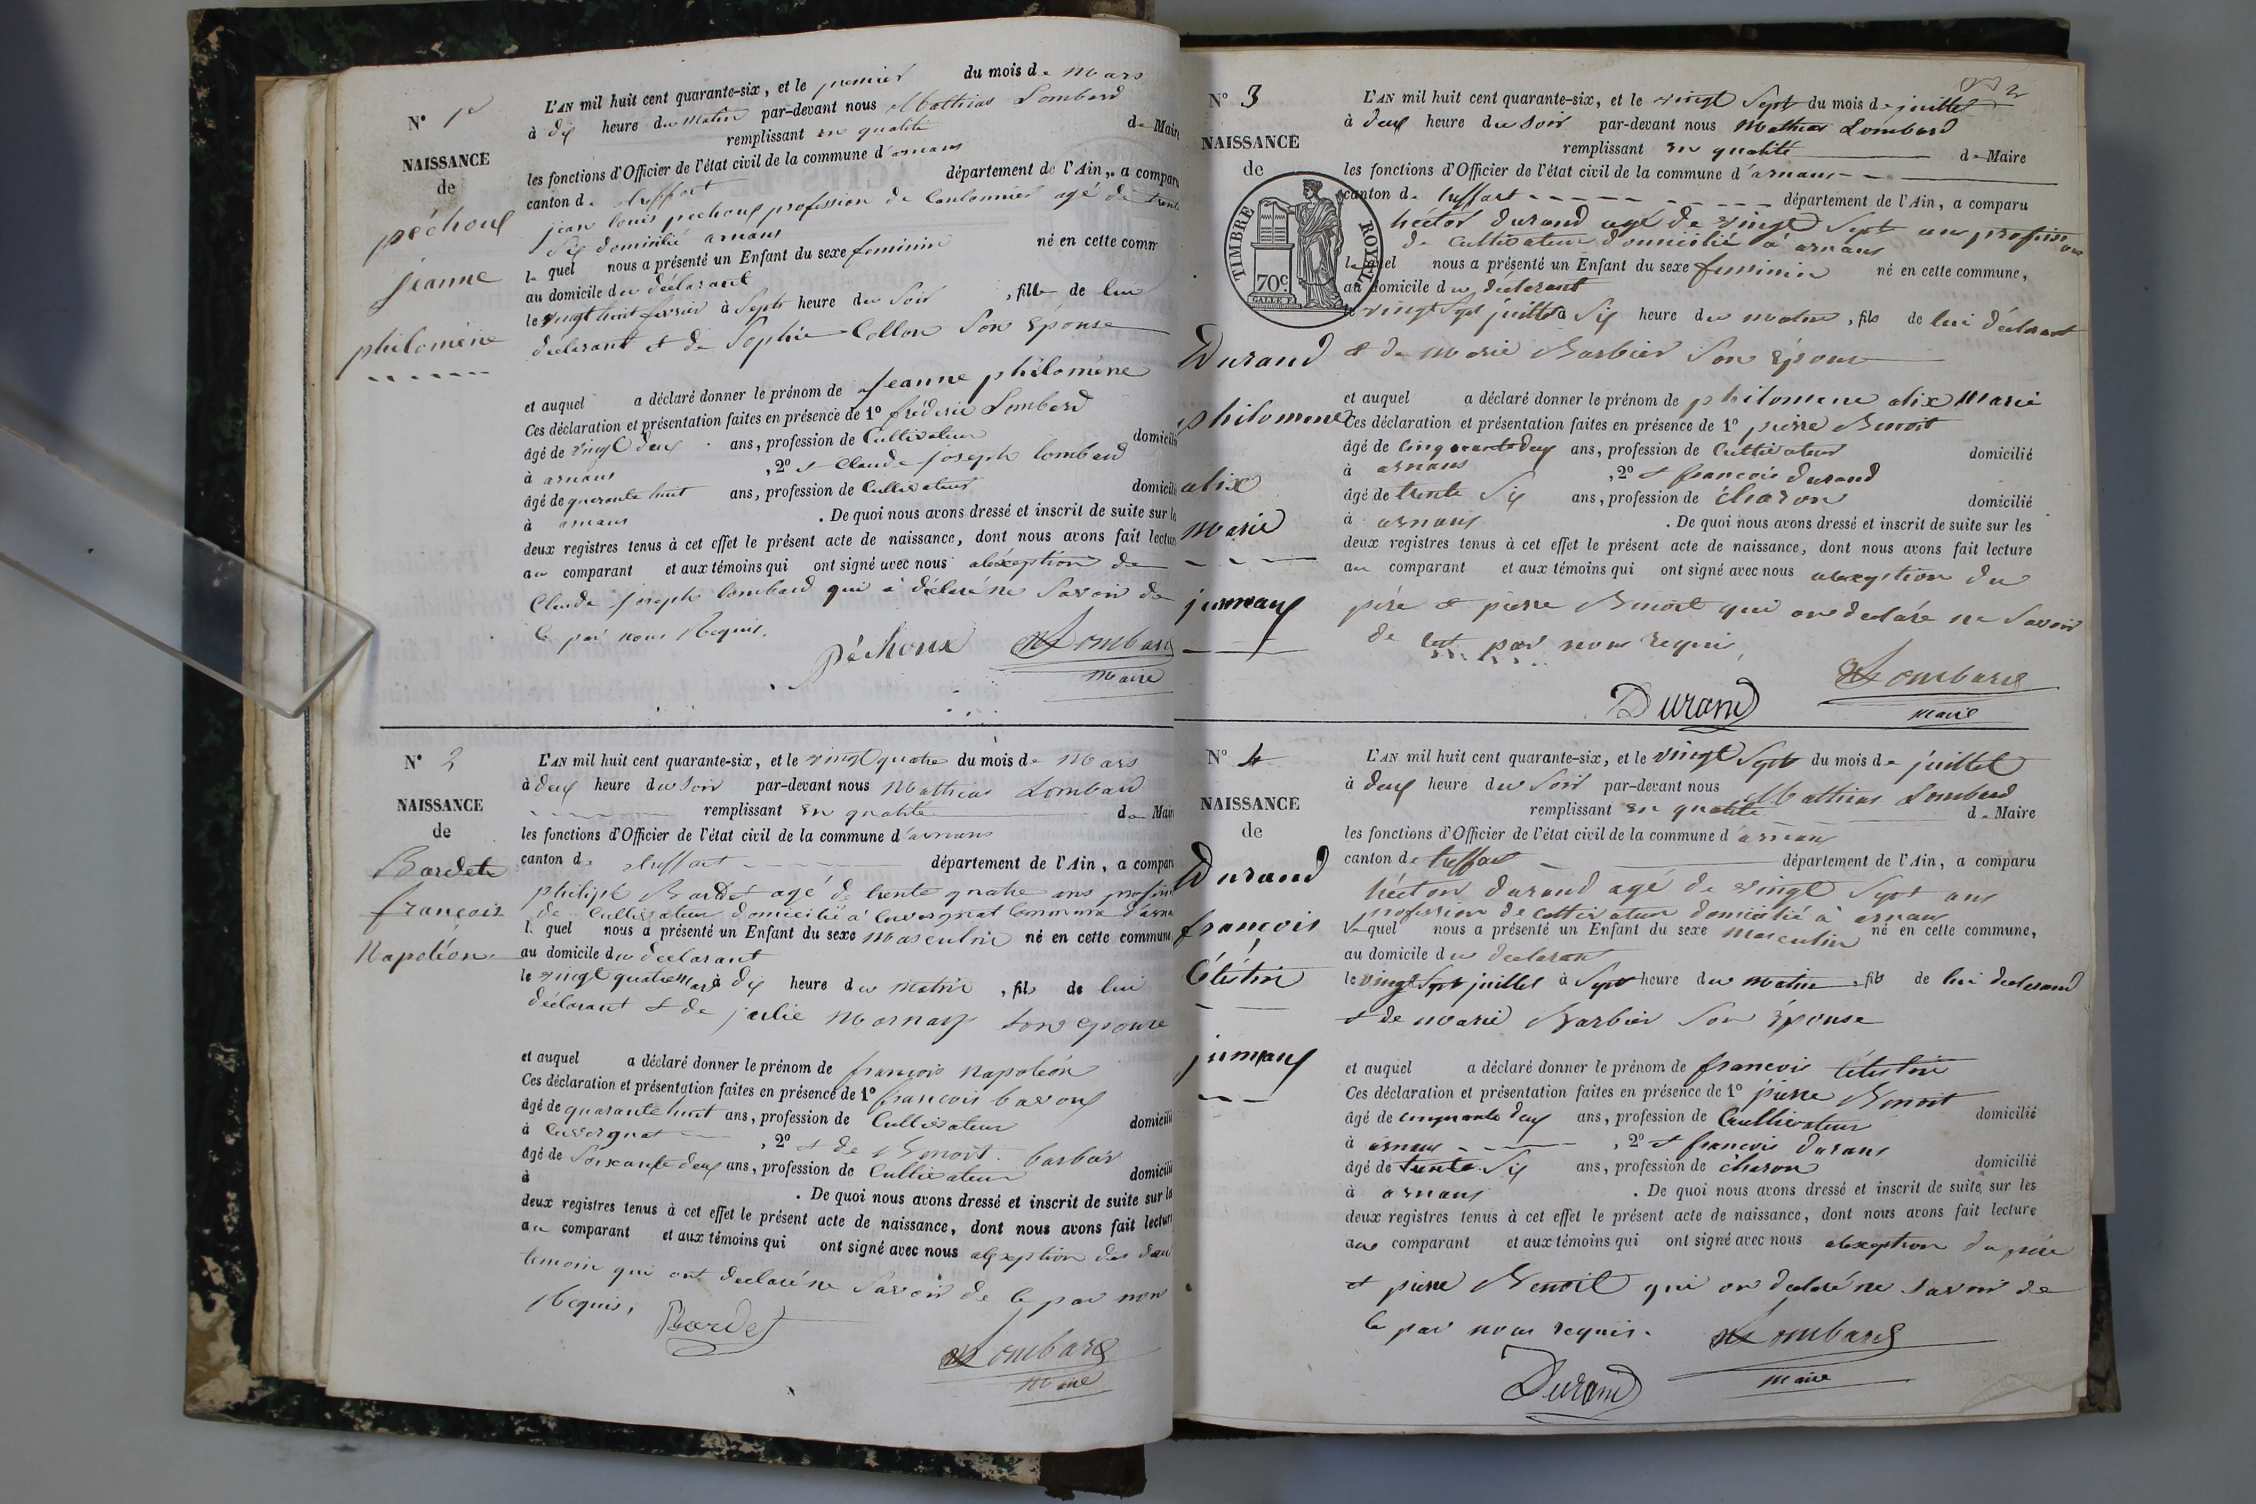 N° 1er
NAISSANCE
de
péchoux
jeanne
philomène
L'AN mil huit cent quarante-six, et le premier du mois de Mars
à dix heure du matin par-devant nous Mathias Lombard
remplissant en qualité de Maire
les fonctions d'Officier de l'état civil de la commune d'arnans
canton de treffort département de l'Ain, a compar
jean louis pechoux profession de Cantonnier agé de trente
six domicilié arnans
le quel nous a présenté un Enfant du sexe feminin né en cette comm
au domicile du déclarant
le vingt huit fevrier à Sept heure du Soir , fille de lui
déclarant et de Sophie Collon Son épouse
et auquel a déclaré donner le prénom de Jeanne philomène
Ces déclaration et présentation faites en présence de 1° fréderic Lombard
âgé de vingt deux ans, profession de Cultivateur domicilié
à arnans , 2° et Claude joseph lombard
âgé de quarante huit ans, profession de Cultivateur domicilié
à arnans . De quoi nous avons dressé et inscrit de suite sur le
deux registres tenus à cet effet le présent acte de naissance, dont nous avons fait lecture
au comparant et aux témoins qui ont signé avec nous aléxception de
Claude joseph lombard qui à déclaré ne Savoir de
ce par nous Requis.
péchoux Lombard
Maire
N° 2
NAISSANCE
de
Bardet
françois
Napoléon
L'AN mil huit cent quarante-six, et le vingt quatre du mois de Mars
à deux heure du Soir par-devant nous Mathias Lombard
remplissant en qualité de Maire
les fonctions d'Officier de l'état civil de la commune d'arnans
canton de treffort département de l'Ain, a compar
philiph Bardet agé de trente quatre ans profession
de Cultivateur domicilié à Cuvergnat Commune d'arna
le quel nous a présenté un Enfant du sexe Masculin né en cette commune
au domicile du declarant
le vingt quatre Mars à dix heure du Matin , fils de lui
déclarant et de julie Marnay son epouse
et auquel a déclaré donner le prénom de françois Napoléon
Ces déclaration et présentation faites en présence de 1° francois bavoux
âgé de quarante huit ans, profession de Cultivateur domicilié
à Cuvergnat , 2° et de Benoit barbier
âgé de Soixante deux ans, profession de Cultivateur domicilié
à . De quoi nous avons dressé et inscrit de suite sur le
deux registres tenus à cet effet le présent acte de naissance, dont nous avons fait lecture
au comparant et aux témoins qui ont signé avec nous aléxception des deux
temoin qui ont declaré ne Savoir de ce par nous
Requis,
Bardet
Lombard
Maire
2
N° 3
NAISSANCE
de
TIMBRE ROYAL
70c.
Durand
philomene
alix
Marie
jumeaux
L'AN mil huit cent quarante-six, et le vingt Sept du mois de juillet
à deux heure du Soir par-devant nous Mathias Lombard
remplissant en qualité de Maire
les fonctions d'Officier de l'état civil de la commune d'arnans
canton de treffort département de l'Ain, a comparu
hector durand agé de vingt Sept an profession
de Cultivateur domicilié à arnans
le quel nous a présenté un Enfant du sexe feminin né en cette commune,
au domicile du déclarant
le vingt Sept juillet à Six heure du matin , fils de lui déclarant
et de Marie Barbier Son Epouse
et auquel a déclaré donner le prénom de philomene alix Marie
Ces déclaration et présentation faites en présence de 1° pierre Benoit
âgé de Cinquante deux ans, profession de Cultivateur domicilié
à arnans , 2° et françois durand
âgé de trente Six ans, profession de charon domicilié
à arnans . De quoi nous avons dressé et inscrit de suite sur les
deux registres tenus à cet effet le présent acte de naissance, dont nous avons fait lecture
au comparant et aux témoins qui ont signé avec nous alexception du
pére et pierre Benoit qui on declaré ne Savoir
de par nous requis
Durand
Lombard
Maire
N° 4
NAISSANCE
de
Durand
françois
Céléstin
jumeaux
L'AN mil huit cent quarante-six, et le vingt Sept du mois de juillet
à deux heure du Soir par-devant nous Mathias Lombard
remplissant en qualité de Maire
les fonctions d'Officier de l'état civil de la commune d'arnans
canton de treffort département de l'Ain, a comparu
héctor durand agé de vingt Sept ans
profession de cultivateur domicilié à arnans
le quel nous a présenté un Enfant du sexe masculin né en cette commune,
au domicile du declarant
le vingt Sept juillet à Sept heure du matin , fils de lui declarant
et de marie Barbier Son Épouse
et auquel a déclaré donner le prénom de francois Céléstin
Ces déclaration et présentation faites en présence de 1° pierre Benoit
âgé de cinquante deux ans, profession de Cultivateur domicilié
à arnans , 2° et francois durans
âgé de trente Six ans, profession de charon domicilié
à arnans . De quoi nous avons dressé et inscrit de suite sur les
deux registres tenus à cet effet le présent acte de naissance, dont nous avons fait lecture
au comparant et aux témoins qui ont signé avec nous alexception du pére
et pierre Benoit qui on declaré ne savoir de
ce par nous requis.
Lombard
Durand
Maire